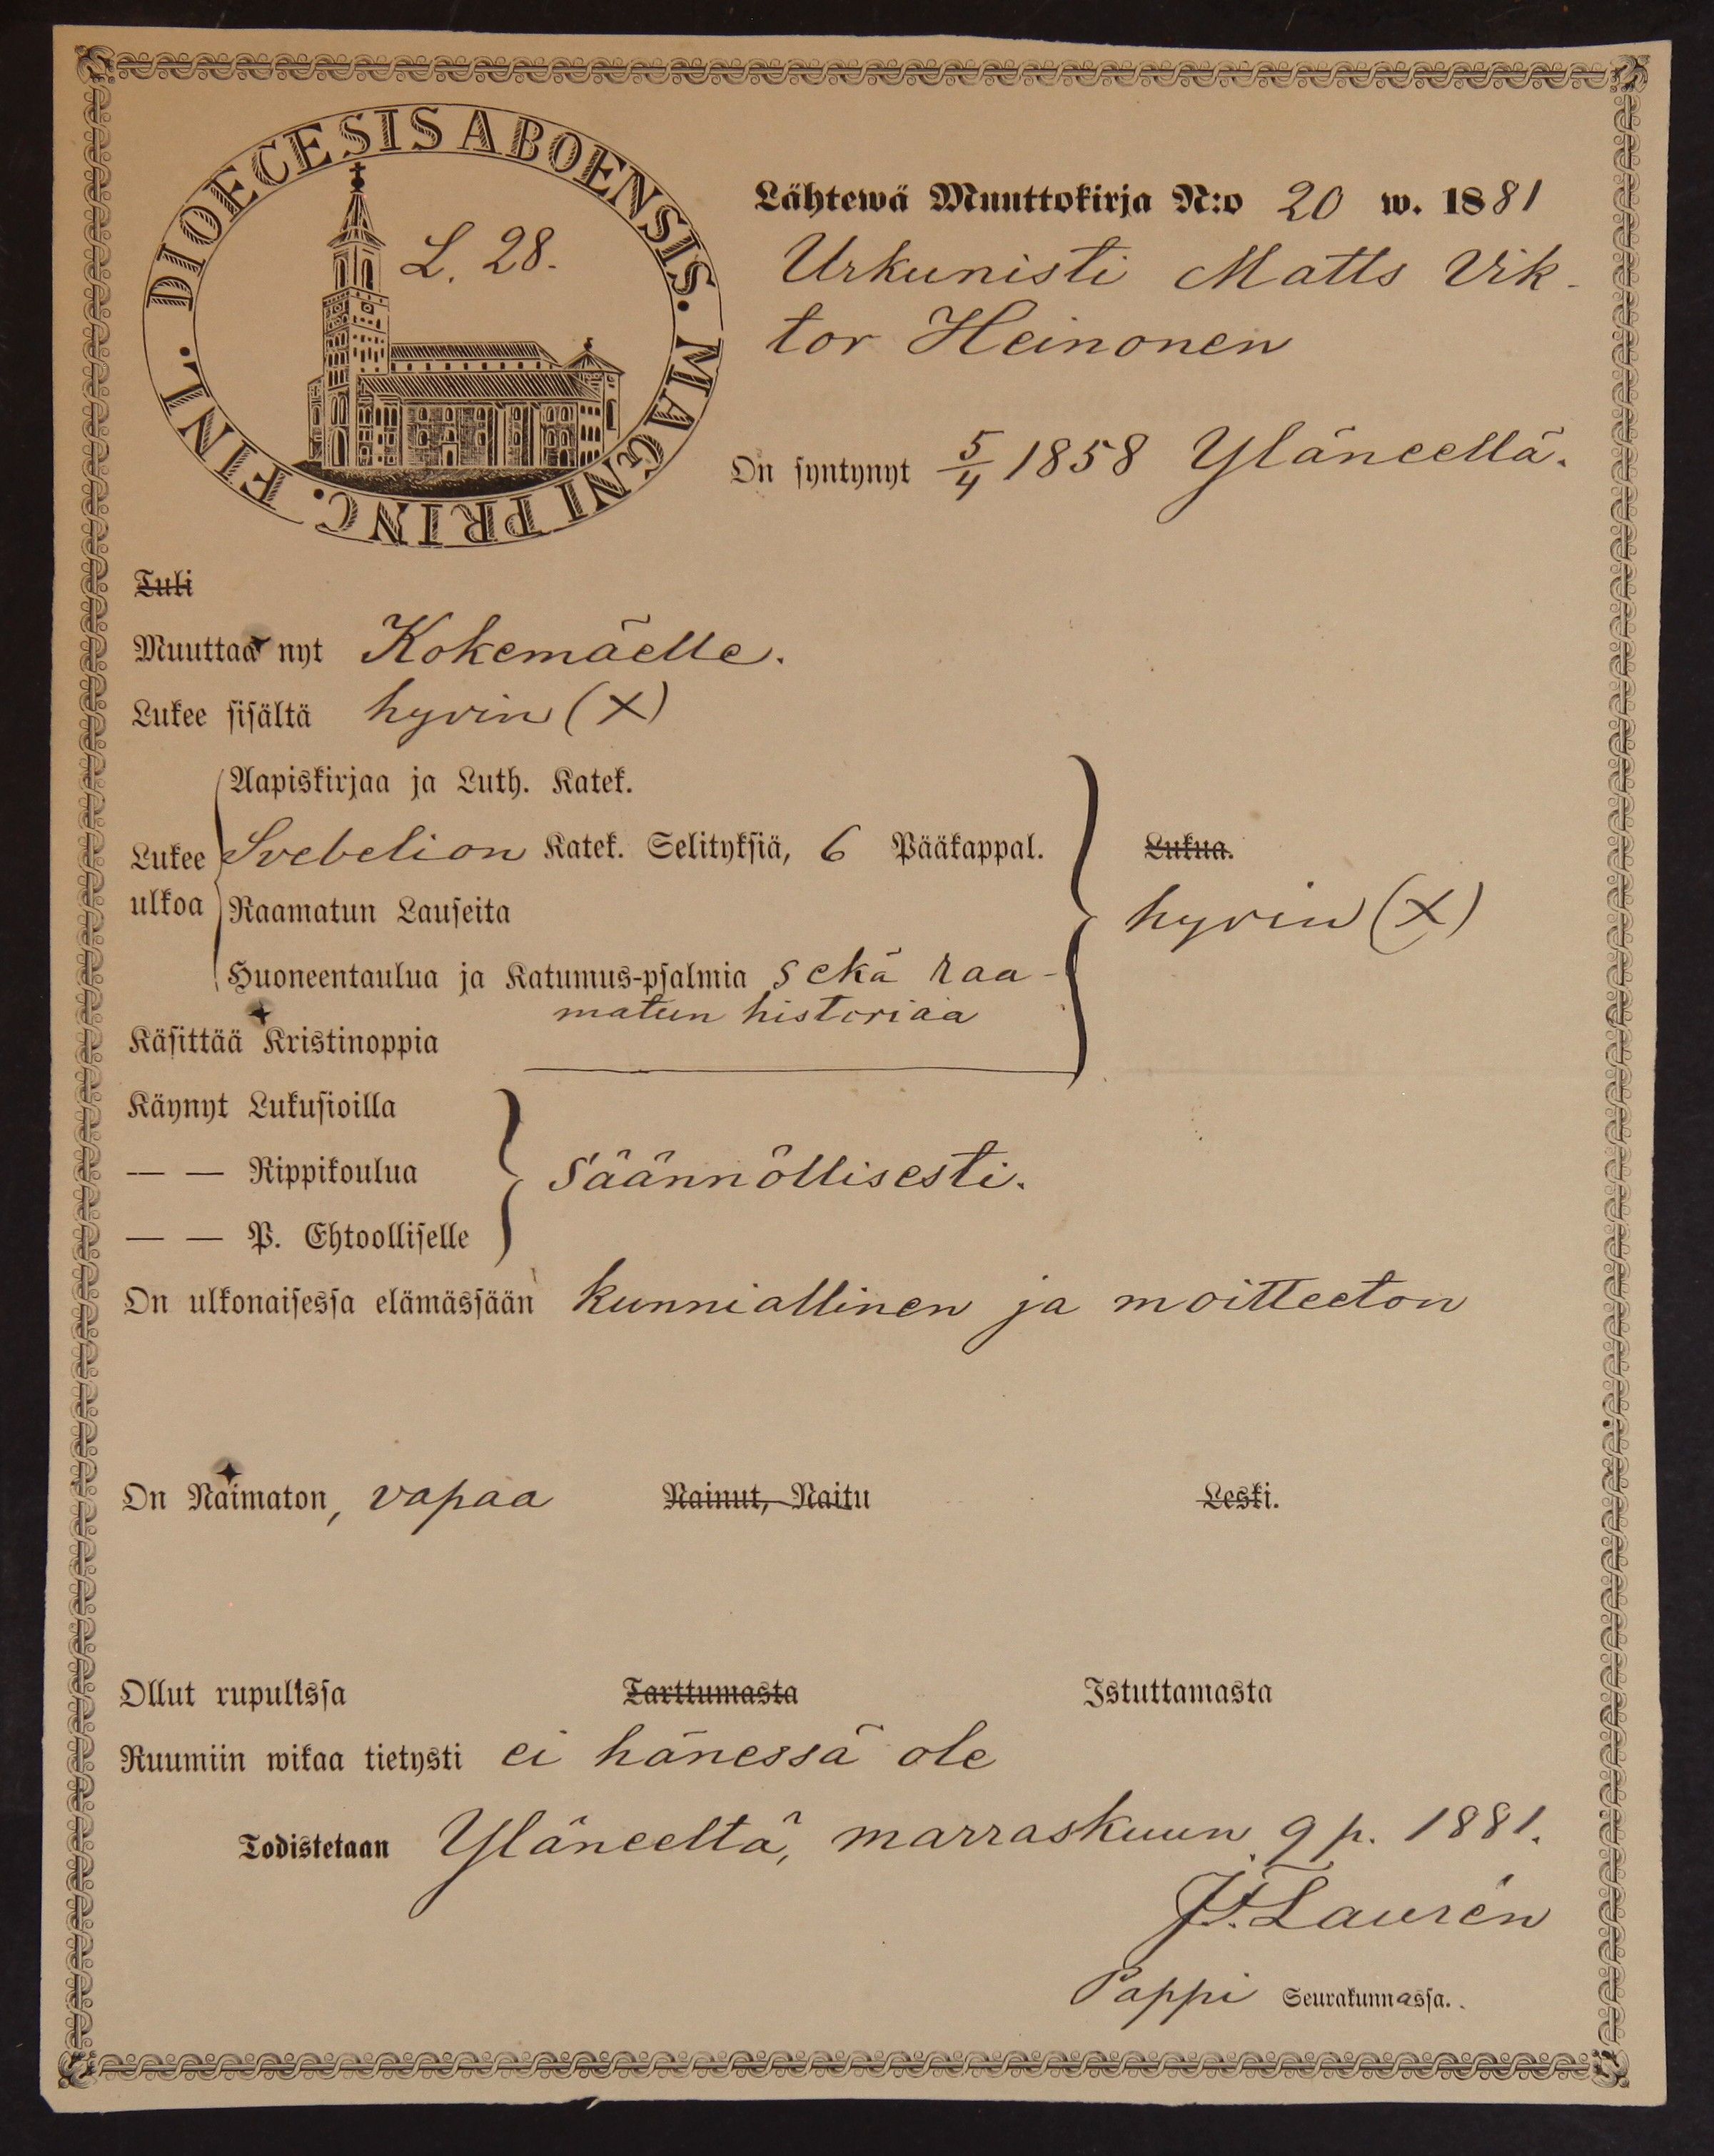 DIOECESIS ABOENSIS. MAGNI PRINC. FINL.
L. 28.
Lähtewä Muuttokirja N:o 20 w. 1881
Urkunisti Matts Vik-
tor Heinonen
On syntynyt 5/4 1858 Yläneellä.
Tuli
Muuttaa nyt Kokemäelle.
Lukee sisältä hyvin (X)
Aapiskirjaa ja Luth. Katek.
Lukee ulkoa
Svebelion Katek. Selityksiä, 6 Pääkappal.
Raamatun Lauseita
Huoneentaulua ja Katumus-psalmia sekä raa-
matun historiaa
Lukua.
hyvin (X)
Käsittää Kristinoppia
Käynyt Lukusioilla
— — Rippikoulua
— — P. Ehtoolliselle
säännöllisesti.
On ulkonaisessa elämässään kunniallinen ja moitteeton
On Naimaton, vapaa Nainut, Naitu Leski.
Ollut rupulissa Tarttumasta Istuttamasta
Ruumiin wikaa tietysti ei hänessä ole
Todistetaan Yläneeltä, marraskuun 9 p. 1881.
Laurén
Pappi Seurakunnassa.